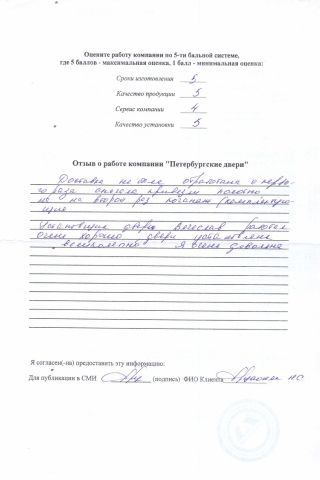 Оцените работу компании по 5-ти бальной системе,
где 5 баллов - максимальная оценка, 1 балл - минимальная оценка:
Сроки изготовления 5
Качество продукции 5
Сервис компании 4
Качество установки 5
Отзыв о работе компании "Петербургские двери"
Доставка не была отработана с перво-
го раза сначала привезли полотно
на второй раз погонаж (комплектую-
щие
Установщик двери Вячеслав работал
очень хорошо двери установлены
великолепно Я очень довольна
Я согласен(-на) предоставить эту информацию:
Для публикации в СМИ (подпись) ФИО Клиента